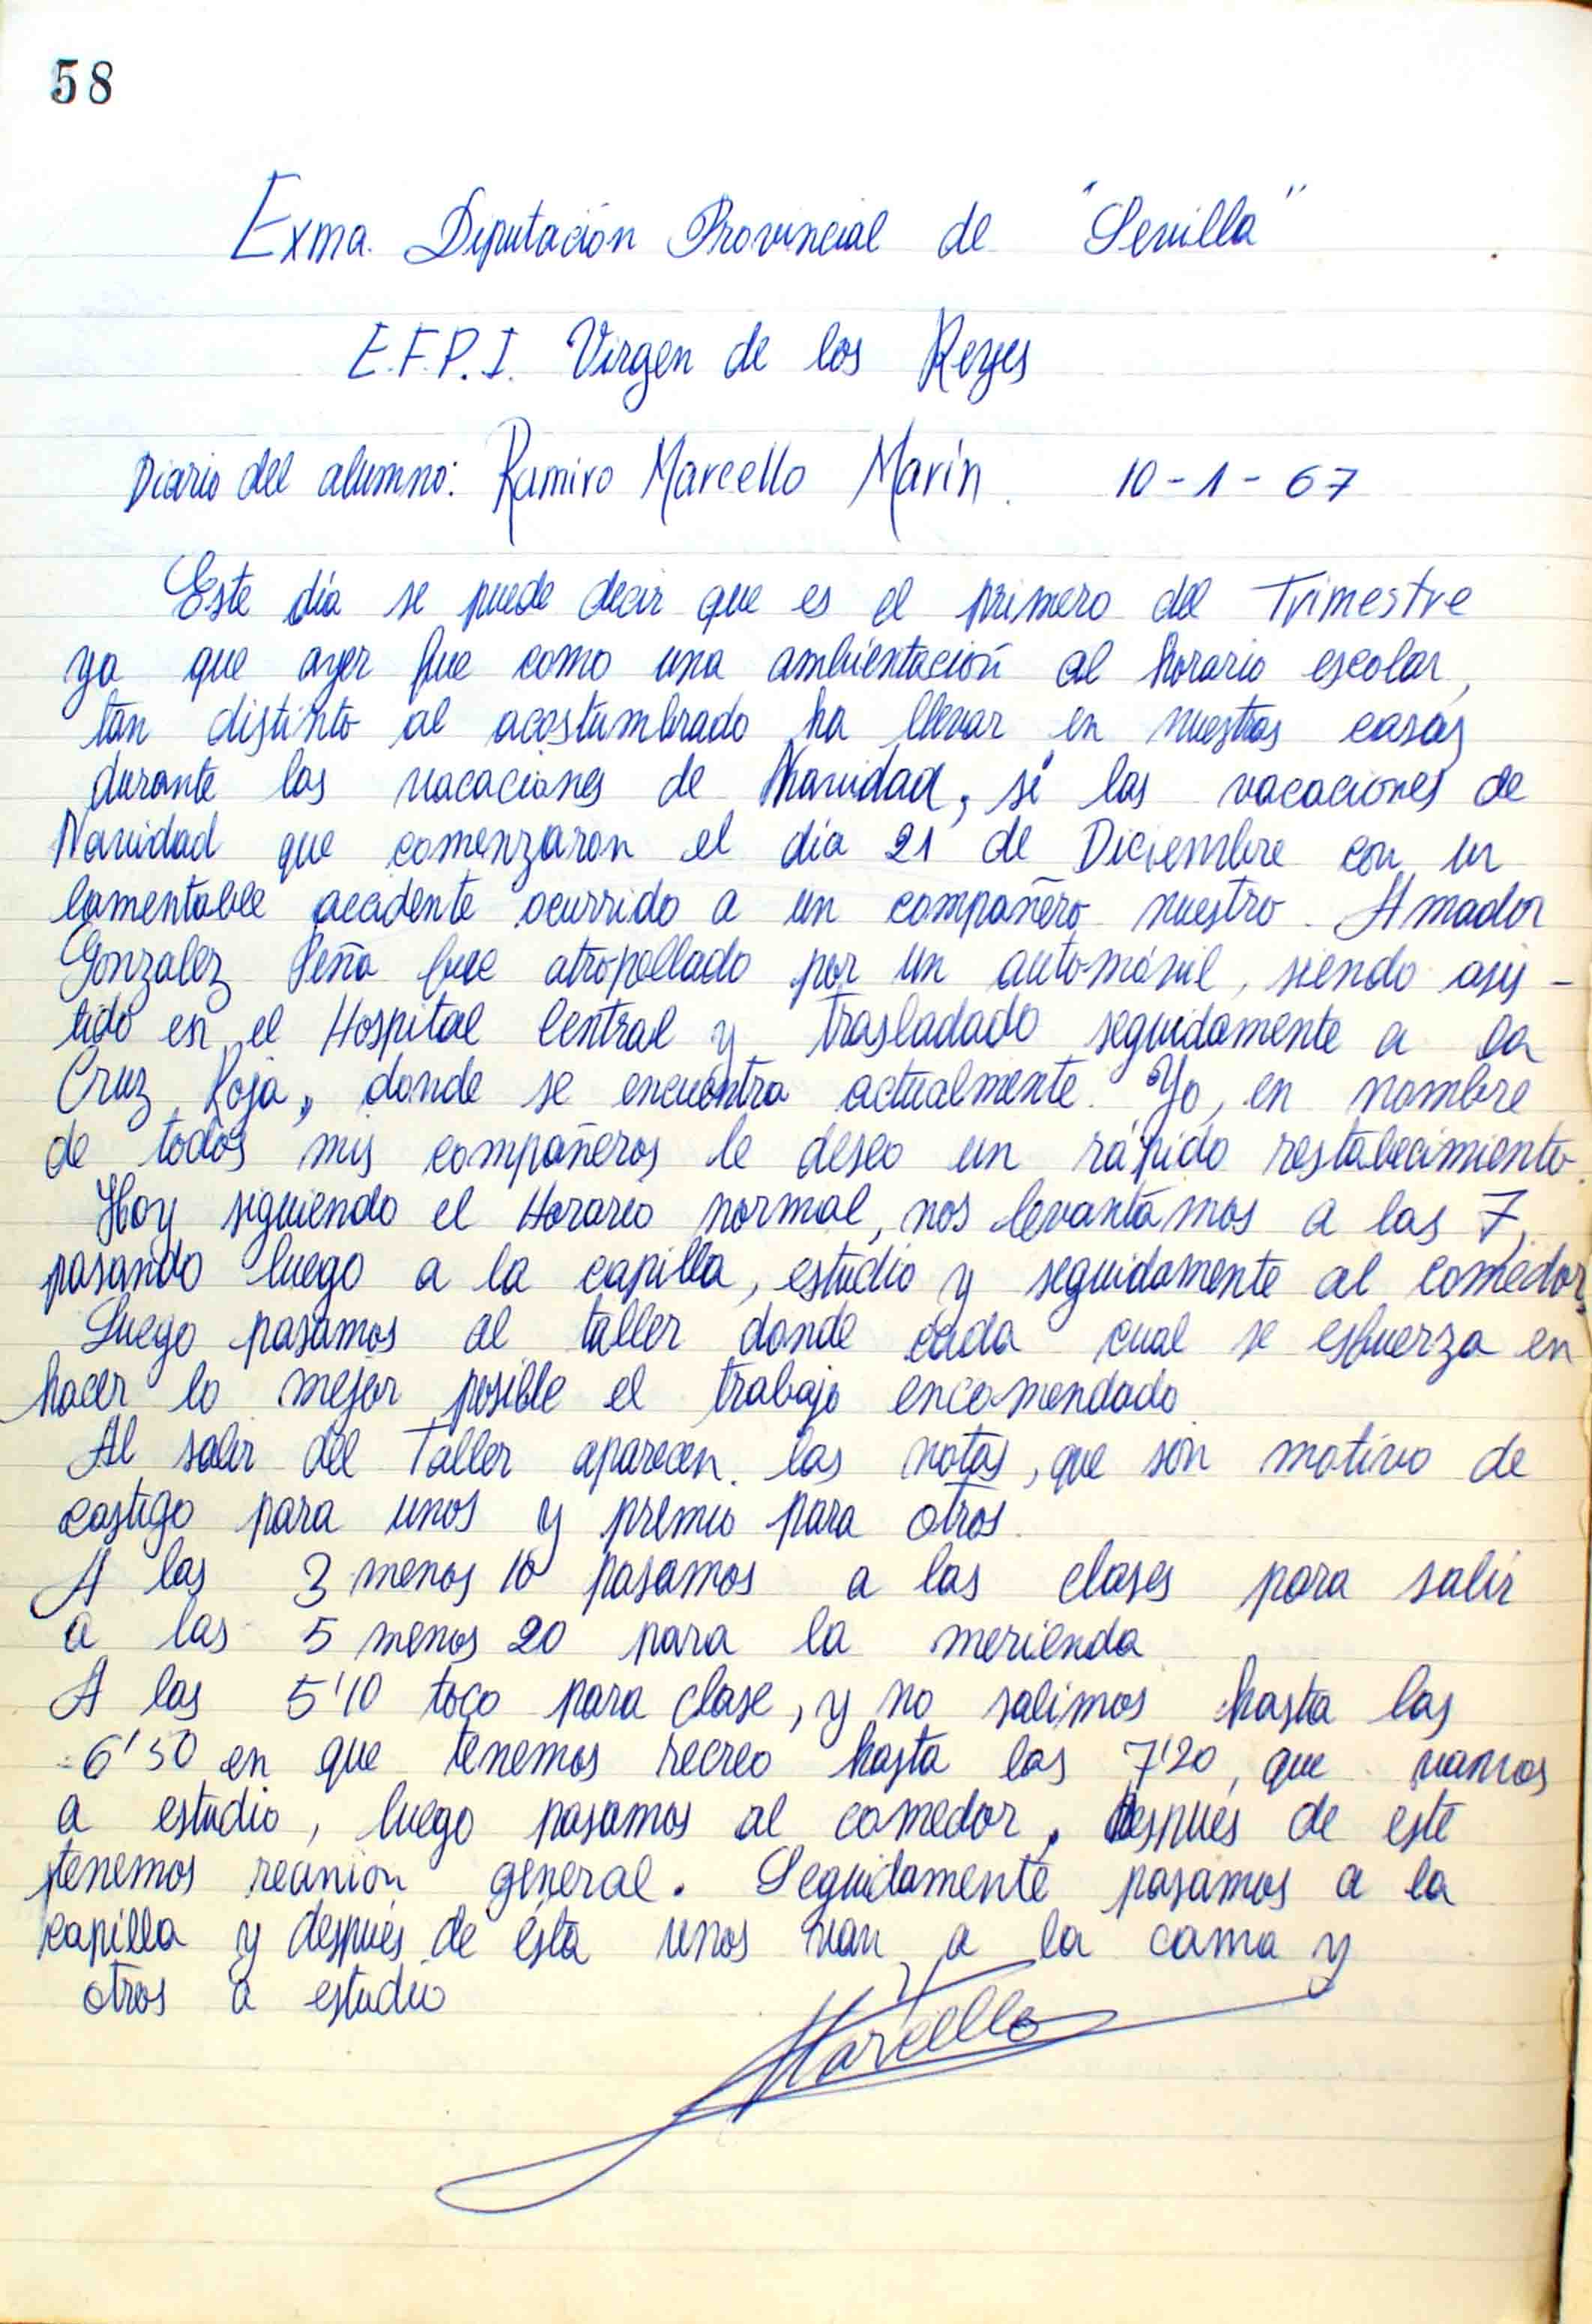 58
Exma. Diputación Provincial de "Sevilla"
E.F.P.I. Virgen de los Reyes
Diario del alumno: Ramiro Marcello Marín. 10-1-67
Este día se puede decir que es el primero del Trimestre
ya que ayer fue como una ambientación al horario escolar,
tan distinto al acostumbrado ha llevar en nuestras casas
durante las vacaciones de Navidad, si las vacaciones de
Navidad que comenzaron el día 21 de Diciembre con un
lamentable accidente ocurrido a un compañero nuestro. Amador
Gonzalez Peña fue atropellado por un automóvil, siendo asis-
tido en el Hospital Central y trasladado seguidamente a la
Cruz Roja, donde se encuentra actualmente. Yo, en nombre
de todos mis compañeros le deseo un rápido restablecimiento.
Hoy siguiendo el Horario normal, nos levantámos a las 7,
pasando luego a la capilla, estudio y seguidamente al comedor,
Luego pasamos al taller donde cada cual se esfuerza en
hacer lo mejor posible el trabajo encomendado
Al salir del Taller aparecen las notas, que son motivo de
castigo para unos y premio para otros.
A las 3 menos 10 pasamos a las clases para salir
a las 5 menos 20 para la merienda
A las 5'10 toco para clase, y no salimos hasta las
6'50 en que tenemos recreo hasta las 7'20, que vamos
a estudio, luego pasamos al comedor, después de este
tenemos reunión general. Seguidamente pasamos a la
capilla y después de ésta unos van a la cama y
otros a estudio
Marcello